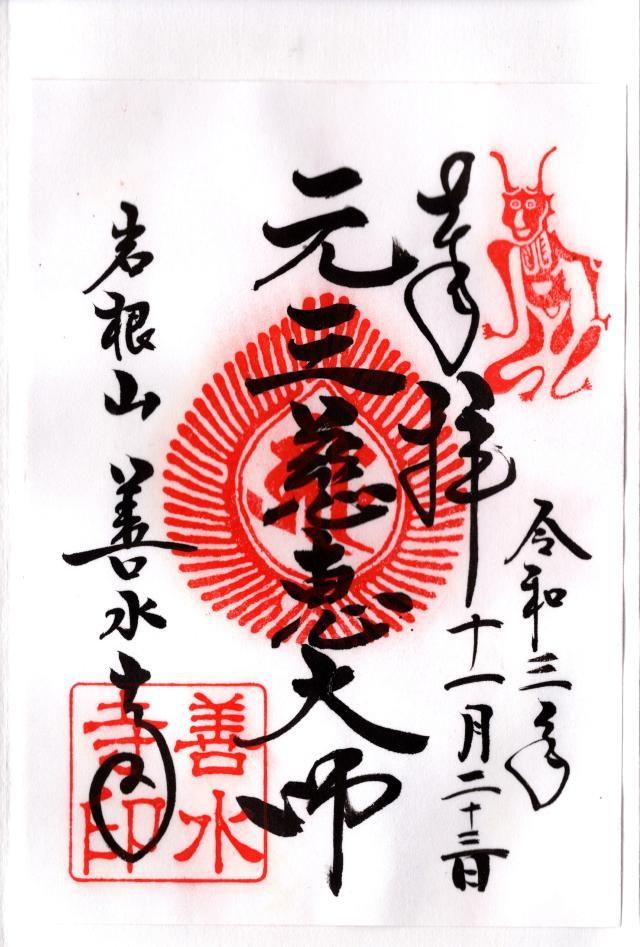 奉拝
令和三年
十一月二十三日
元三慈恵大師
岩根山 善水寺
善水
寺印